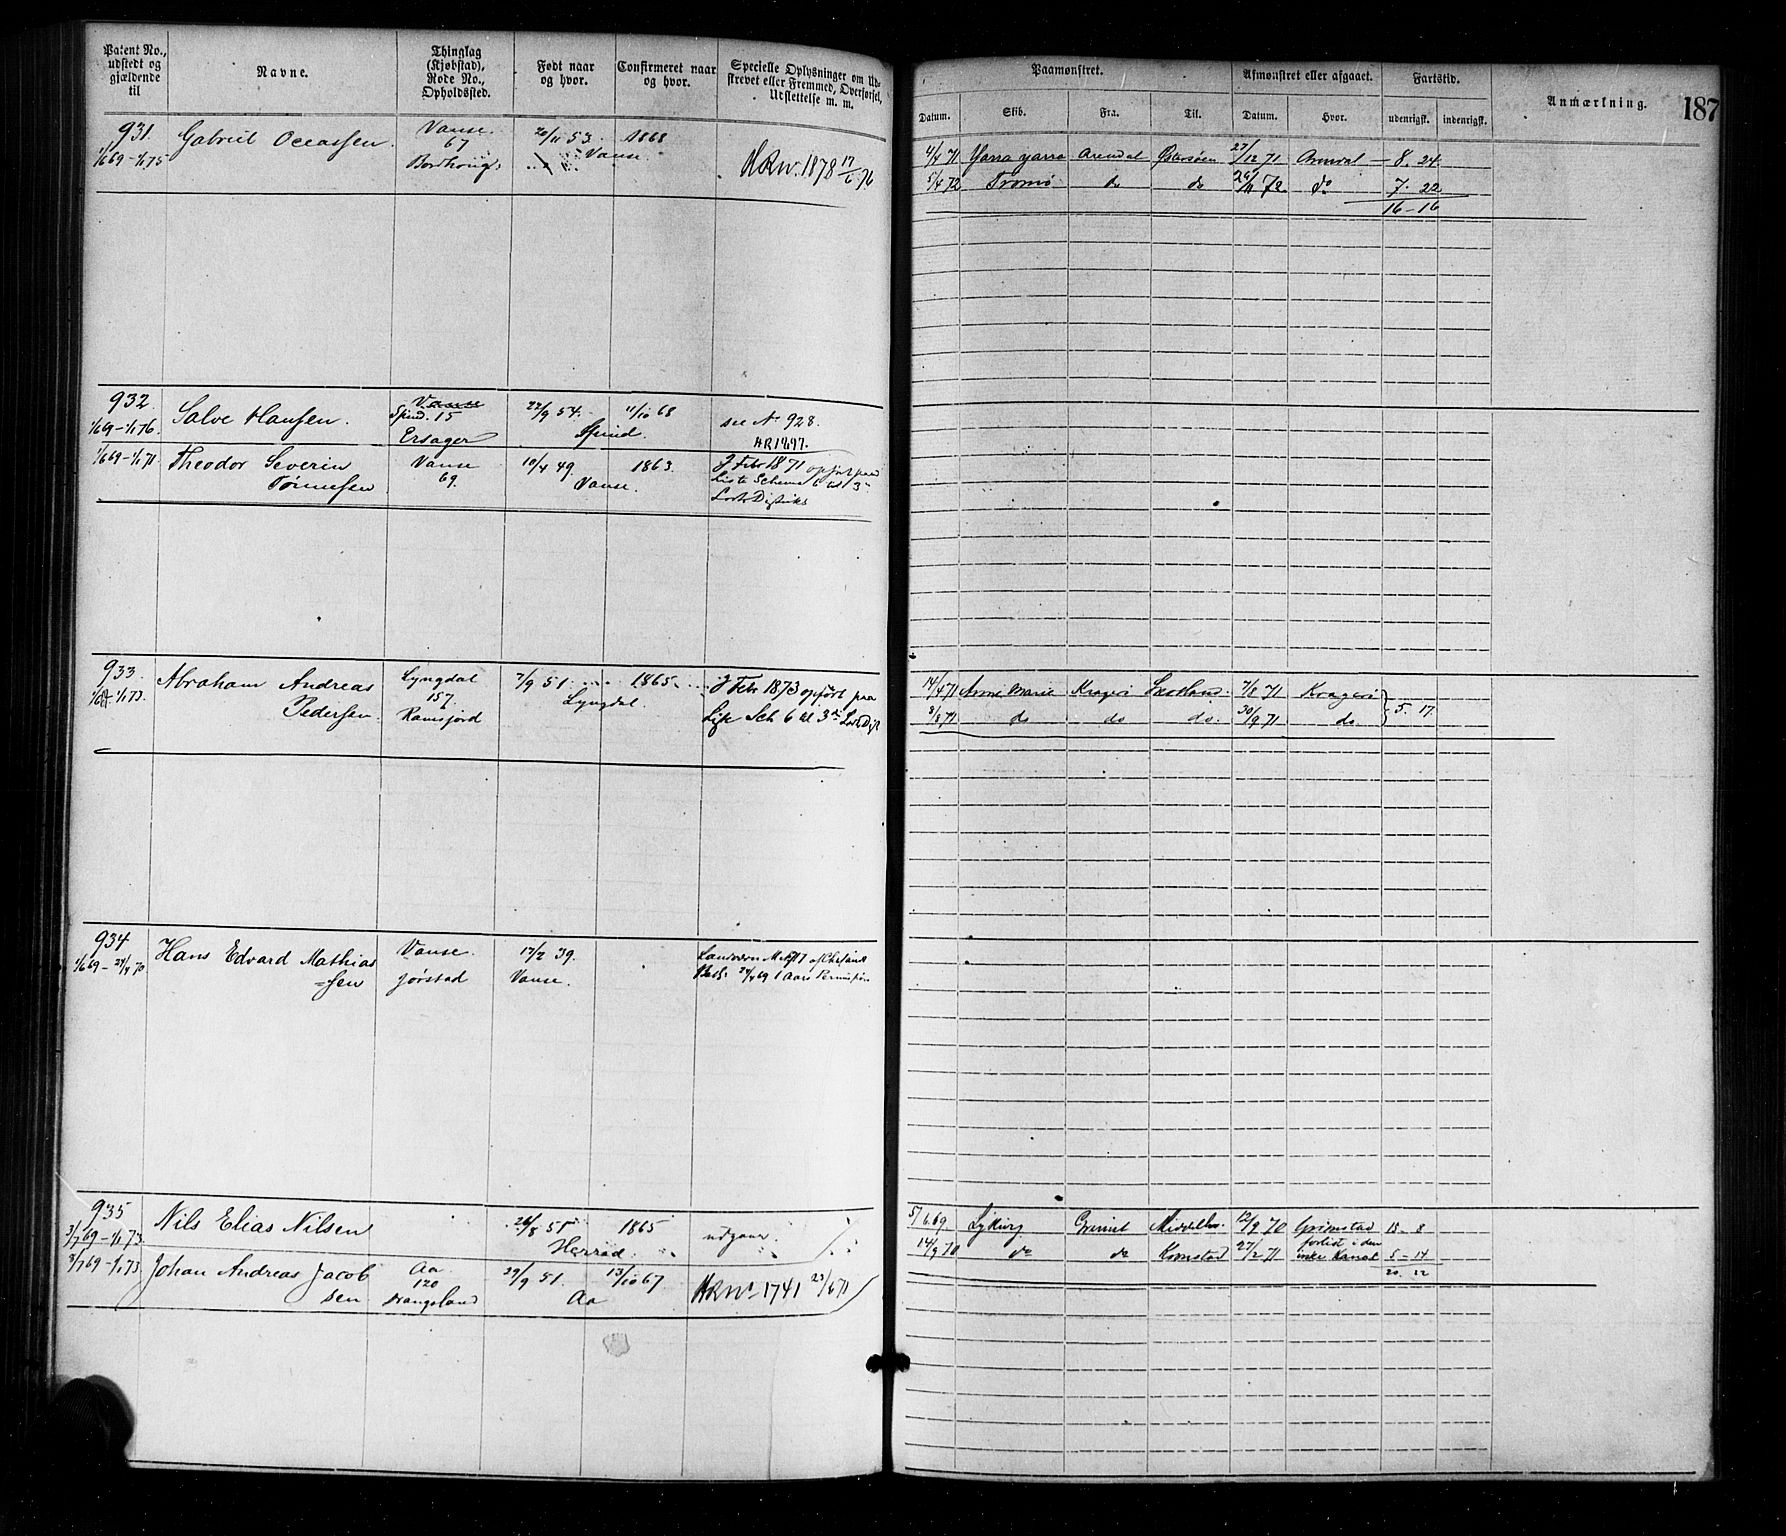 Patent No., udstedt og gjældende til
Navne.
Thinglag (Kjøbstad), Rode No., Opholdssted.
Født naar og hvor.
Confirmeret naar og hvor.
Specielle Oplysninger om Ud-
skrevet eller Fremmed, Overførsel,
Udslettelse m. m.
Paamønstret.
Afmønstret eller afgaaet.
Fartstid.
Anmærkning.
187
Datum. Skib. Fra. Til. Datum. Hvor. udenrigsk. indenrigsk.
931. Gabriel Vanse. 26/11 53. 1868
1/6 69 – 1/1 75 67 Vanse
H R No. 1878 17/6 76
4/4 71 Yarra yarra Arendal Østersøen 27/12 71 Arendal – 8. 24.
5/4 72 Tromø do do 29/11 72 do 7. 22
16 – 16
932. Salve Hansen. Vanse 22/9 54. 11/10 68 see No 928.
1/6 69 – 1/1 76. Spind. 15 Spind. HR 1897.
Ersager
1/6 69 – 1/1 71. Theodor Severin Vanse 10/4 49. 1863. J Febr 1871 opført paa
Tønnesen 69. Vanse. Liste Schema 6 til 3
Lods Distrikt
933. Abraham Andreas Lyngdal 7/9 51. 1865. J Febr 1873 opført paa
1/1 73. Pedersen. 157. Lyngdal. Liste Sch 6 til 3die Lods Dist
Ramsjord
14/4 71 Anne Marie Kragerø Skotland 7/8 71 Kragerø
8/8 71 do do do. 30/9 71 do. 5. 17.
934 Hans Edvard Mathias Vanse. 17/2 39. Landværn
1/6 69 – 24/4 70 =sen Jørstad Vanse. 24/4 69 1 Aars Permission
935 Nils Elias Nilsen 26/8 51 1865 udgaar.
3/7 69 – 1/1 73. Herred
5/6 69 Lykken Grimst Middelhav. 12/9 70 Grimstad 15 – 8
14/9 70 do do 27/2 71 forlist i den
Kanal 5 – 14
20. 22
3/7 69 – 1/1 73 Johan Andreas Jacob Aa 29/9 51. 13/10 67. H R No 1741 23/6 71
sen 120 Aa